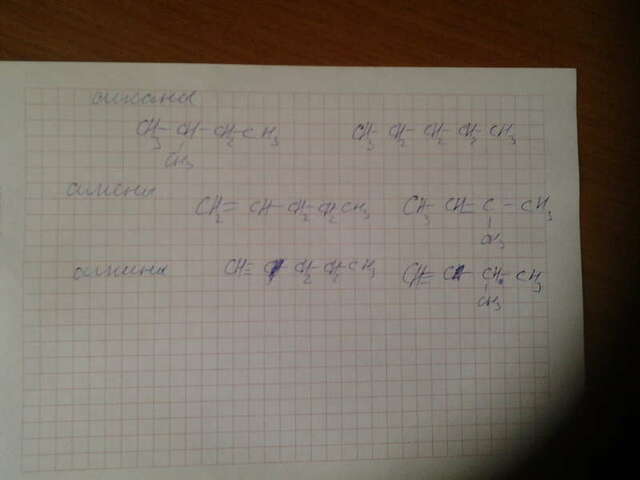 алкани
CH3-CH-CH2-CH3 CH3-CH2-CH2-CH2-CH3
CH3
алкени
CH2=CH-CH2-CH2-CH3 CH3-CH=C-CH3
CH3
алкини
CH≡C-CH2-CH2-CH3 CH≡C-CH-CH3
CH3